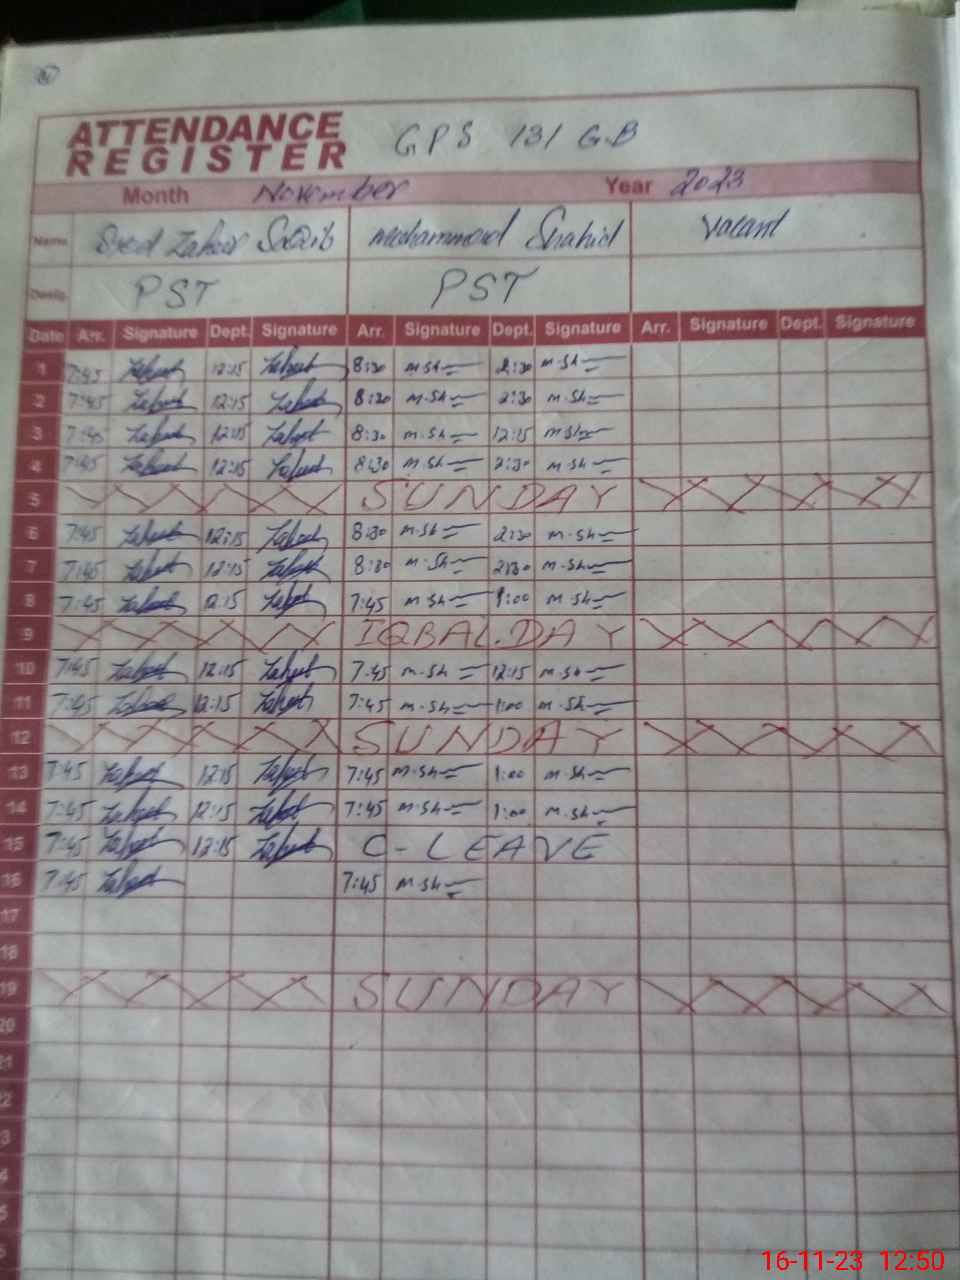 ATTENDANCE
REGISTER GPS 131 G.B
Month November Year 2023
Name Syed Zaheer Saqib Mohammad Shahid Vacant
Desig. PST PST
Date Arr. Signature Dept. Signature Arr. Signature Dept. Signature Arr. Signature Dept. Signature
1 7:45 12:15 8:30 m.sh 2:30 m.sh
2 7:45 12:15 8:30 m.sh 2:30 m.sh
3 7:45 12:15 8:30 m.sh 12:15 m.sh
4 7:45 12:15 8:30 m.sh 2:30 m.sh
5 SUNDAY
6 7:45 12:15 8:30 m.sh 2:30 m.sh
7 7:45 12:15 8:30 m.sh 2:30 m.sh
8 7:45 12:15 7:45 m.sh 1:00 m.sh
9 IQBAL.DAY
10 7:45 12:15 7:45 m.sh 12:15 m.sh
11 7:45 12:15 7:45 m.sh 1:00 m.sh
12 SUNDAY
13 7:45 12:15 7:45 m.sh 1:00 m.sh
14 7:45 12:15 7:45 m.sh 1:00 m.sh
15 7:45 12:15 C-LEAVE
16 7:45 7:45 m.sh
17
18
19 SUNDAY
20
21
22
3
4
5
6
16-11-23 12:50